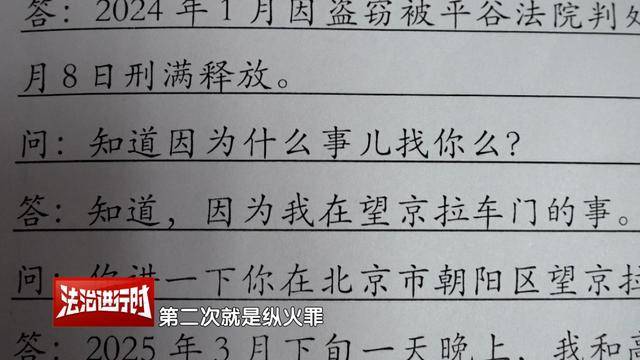 答：2024年1月因盗窃被平谷法院判处
月8日刑满释放。
问：知道因为什么事儿找你么？
答：知道，因为我在望京拉车门的事。
问：你讲一下你在北京市朝阳区望京拉
答：2025年3月下旬一天晚上，我和高
法治进行时
第二次就是纵火罪